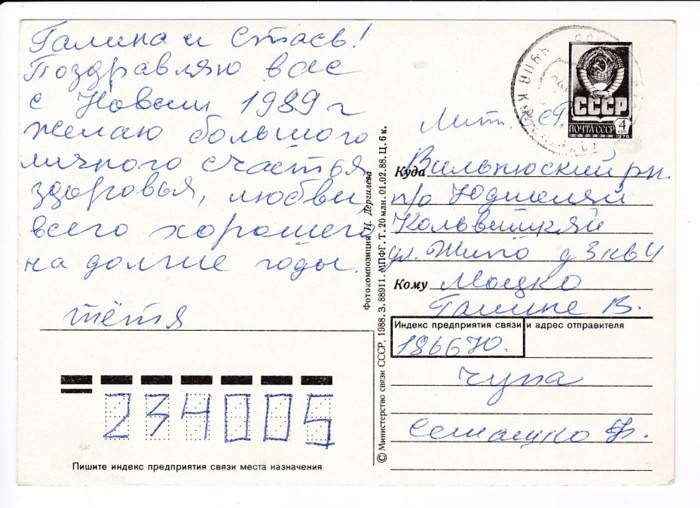 Галина и Стась!
Поздравляю вас
с Новым 1989 г
желаю большого
личного счастья,
здоровья, любви,
всего хорошего
на долгие годы.
тётя
234005
Пишите индекс предприятия связи места назначения
Фотокомпозиция И. Дергилева
© Министерство связи СССР, 1988. З. 88911. МПФГ. Т. 20 млн. 01.02.88. Ц. 6 к.
СССР
ПОЧТА СССР
4
1976
Лит. ССР.
Куда Вильнюсский рн.
п/о
ул. д 3 кв 4
Кому Моцко
Галине В.
Индекс предприятия связи и адрес отправителя
186670.
Чупа
Семашко Ф.